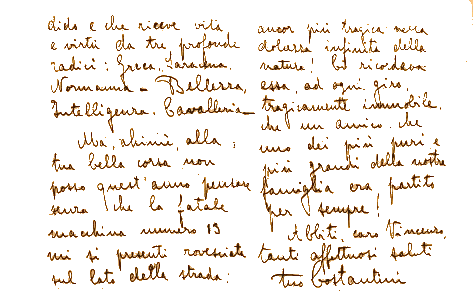 dido e che riceve vita
e virtù da tre profonde
radici: Greca, Saracena,
Normanna – Bellezza,
Intelligenza, Cavalleria –
Ma, ahimè, alla
tua bella corsa non
posso quest'anno pensare
senza che la fatale
macchina numero 13
mi si presenti rovesciata
sul lato della strada:
ancor più tragica nella
dolcezza infinita della
natura! Ed ricordava
essa, ad ogni giro,
tragicamente immobile,
che un amico, che
uno dei più puri e
più grandi della nostra
famiglia era partito
per sempre!
Abbiti caro Vincenzo,
tanti affettuosi saluti
tuo Costantini